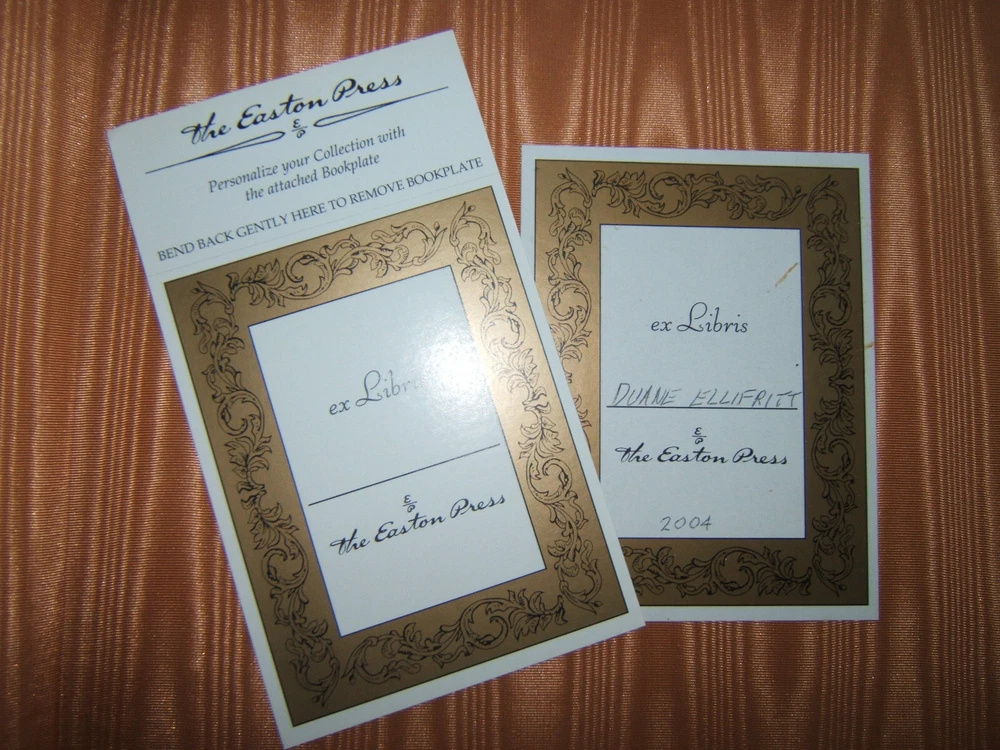 the Easton Press
EP
Personalize your Collection with
the attached Bookplate
BEND BACK GENTLY HERE TO REMOVE BOOKPLATE
ex Libris
EP
the Easton Press
ex Libris
DUANE ELLIFRITT
EP
the Easton Press
2004